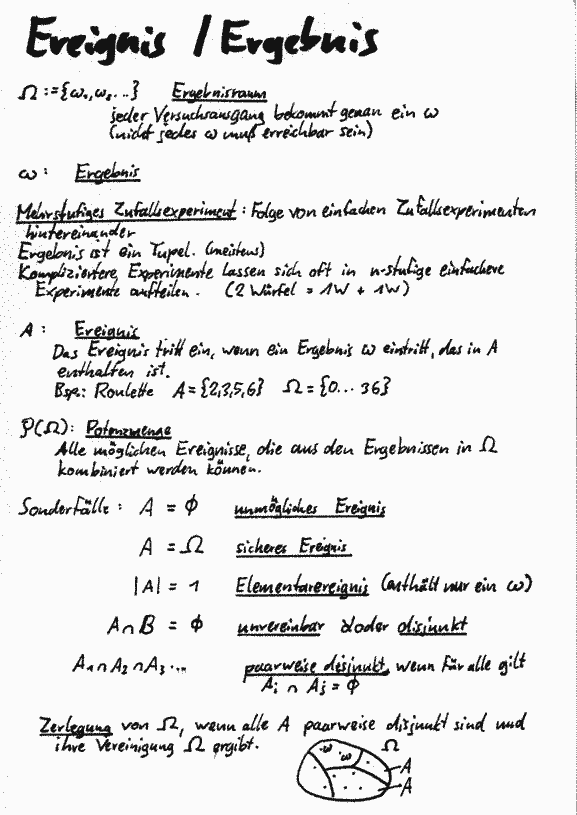 Ereignis / Ergebnis
Ω := {ω₁, ω₂ ...} Ergebnisraum
jeder Versuchsausgang bekommt genau ein ω
(nicht jedes ω muß erreichbar sein)
ω : Ergebnis
Mehrstufiges Zufallsexperiment : Folge von einfachen Zufallsexperimenten
hintereinander
Ergebnis ist ein Tupel. (meistens)
Kompliziertere Experimente lassen sich oft in n-stufige einfachere
Experimente aufteilen. (2 Würfel = 1W + 1W)
A : Ereignis
Das Ereignis tritt ein, wenn ein Ergebnis ω eintritt, das in A
enthalten ist.
Bsp.: Roulette A = {2,3,5,6} Ω = {0... 36}
P(Ω): Potenzmenge
Alle möglichen Ereignisse, die aus den Ergebnissen in Ω
kombiniert werden können.
Sonderfälle : A = ϕ unmögliches Ereignis
A = Ω sicheres Ereignis
|A| = 1 Elementarereignis (enthält nur ein ω)
A ∩ B = ϕ unvereinbar oder disjunkt
A₁ ∩ A₂ ∩ A₃ ... paarweise disjunkt, wenn für alle gilt
Aᵢ ∩ Aⱼ = ϕ
Zerlegung von Ω, wenn alle A paarweise disjunkt sind und
ihre Vereinigung Ω ergibt.
ω Ω
ω
A
A